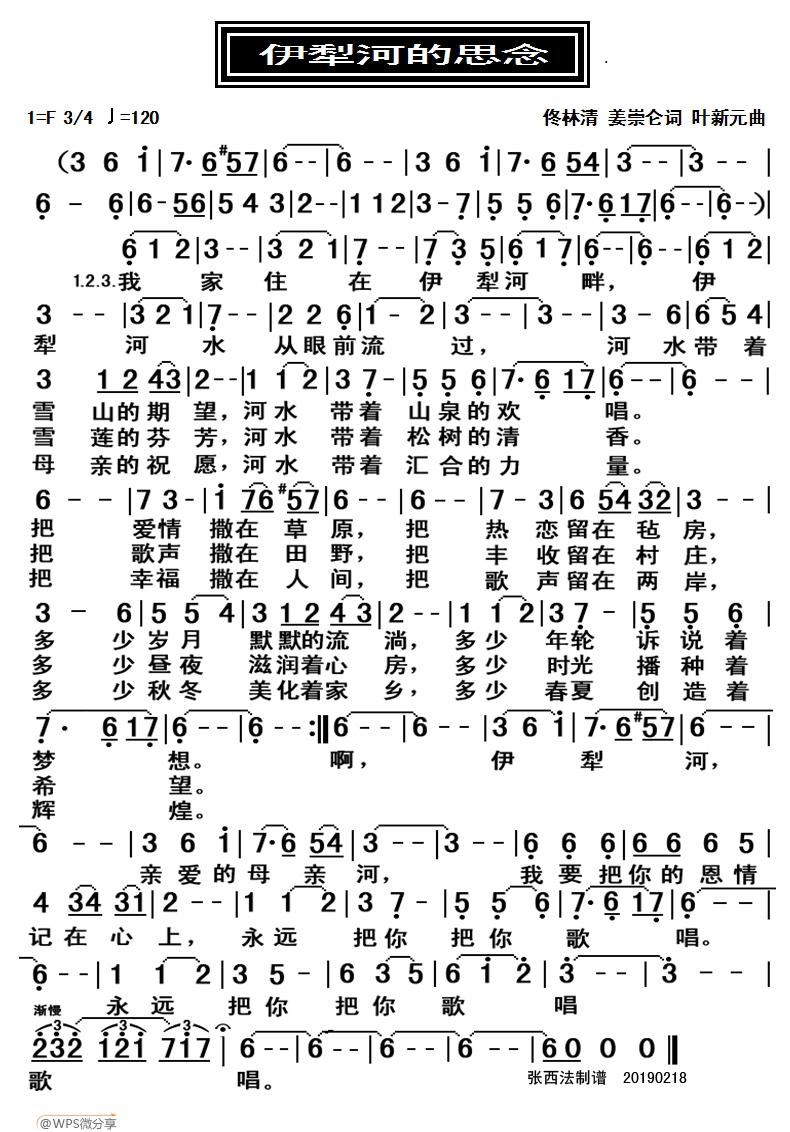 伊犁河的思念
1=F 3/4 ♩=120 佟林清 姜崇仑词 叶新元曲
(3 6 i|7· 6 #57|6--|6--|3 6 i|7· 6 54|3--|3--|
6 - 6|6- 56|5 4 3|2--|1 1 2|3- 7|5 5 6|7· 6 17|6--|6--)|
6 1 2|3--|3 2 1|7--|7 3 5|6 1 7|6--|6--|6 1 2|
1.2.3.我 家 住 在 伊 犁河 畔， 伊
3 --|3 2 1|7--|2 2 6|1- 2|3--|3--|3- 6|6 5 4|
犁 河 水 从眼前流 过， 河 水带着
3 12 43|2--|1 1 2|3 7-|5 5 6|7· 6 17|6--|6 --|
雪 山的期 望，河水 带着 山泉的欢 唱。
雪 莲的芬 芳，河水 带着 松树的清 香。
母 亲的祝 愿，河水 带着 汇合的力 量。
6 --|7 3-|i 76 #57|6--|6--|7 - 3|6 54 32|3 --|
把 爱情 撒在 草 原， 把 热 恋留在 毡 房，
把 歌声 撒在 田 野， 把 丰 收留在 村 庄，
把 幸福 撒在 人 间， 把 歌 声留在 两 岸，
3 - 6|5 5 4|3 12 43|2--|1 1 2|3 7-|5 5 6|
多 少岁月 默默的流 淌， 多少 年轮 诉 说 着
多 少昼夜 滋润着心 房， 多少 时光 播 种 着
多 少秋冬 美化着家 乡， 多少 春夏 创 造 着
7· 6 17|6--|6--:||6--|6--|3 6 i|7· 6#57|
梦 想。 啊， 伊 犁 河，
希 望。
辉 煌。
6 --|3 6 i|7· 6 54|3--|3--|6 6 6|6 6 6 5|
亲 爱的母 亲 河， 我 要 把你的恩情
4 34 31|2--|1 1 2|3 7-|5 5 6|7· 6 17|6--|
记在 心 上， 永远 把你 把你 歌 唱。
6--|1 1 2|3 5-|6 3 5|6 i 2|3--|3--|
渐慢 永 远 把你 把你 歌 唱
232 121 717|6--|6--|6--|6--|60 0 0||
歌 唱。
张西法制谱 20190218
@WPS微分享